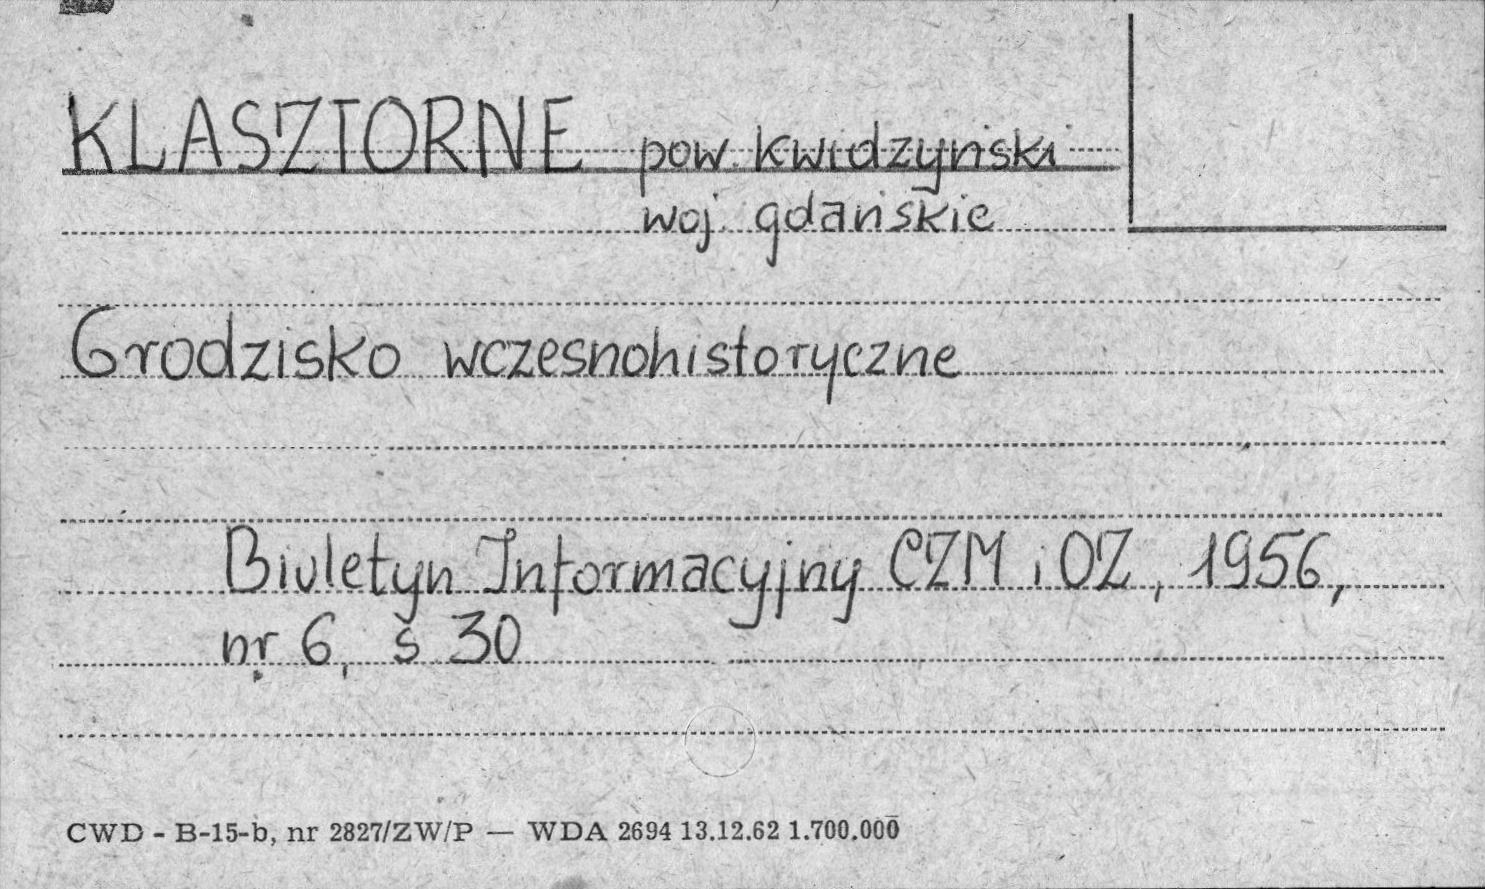 KLASZTORNE pow. Kwidzyński
woj. gdańskie
Grodzisko wczesnohistoryczne
Biuletyn Informacyjny CZM i OZ, 1956,
nr 6, s 30
CWD - B-15-b, nr 2827/ZW/P — WDA 2694 13.12.62 1.700.000